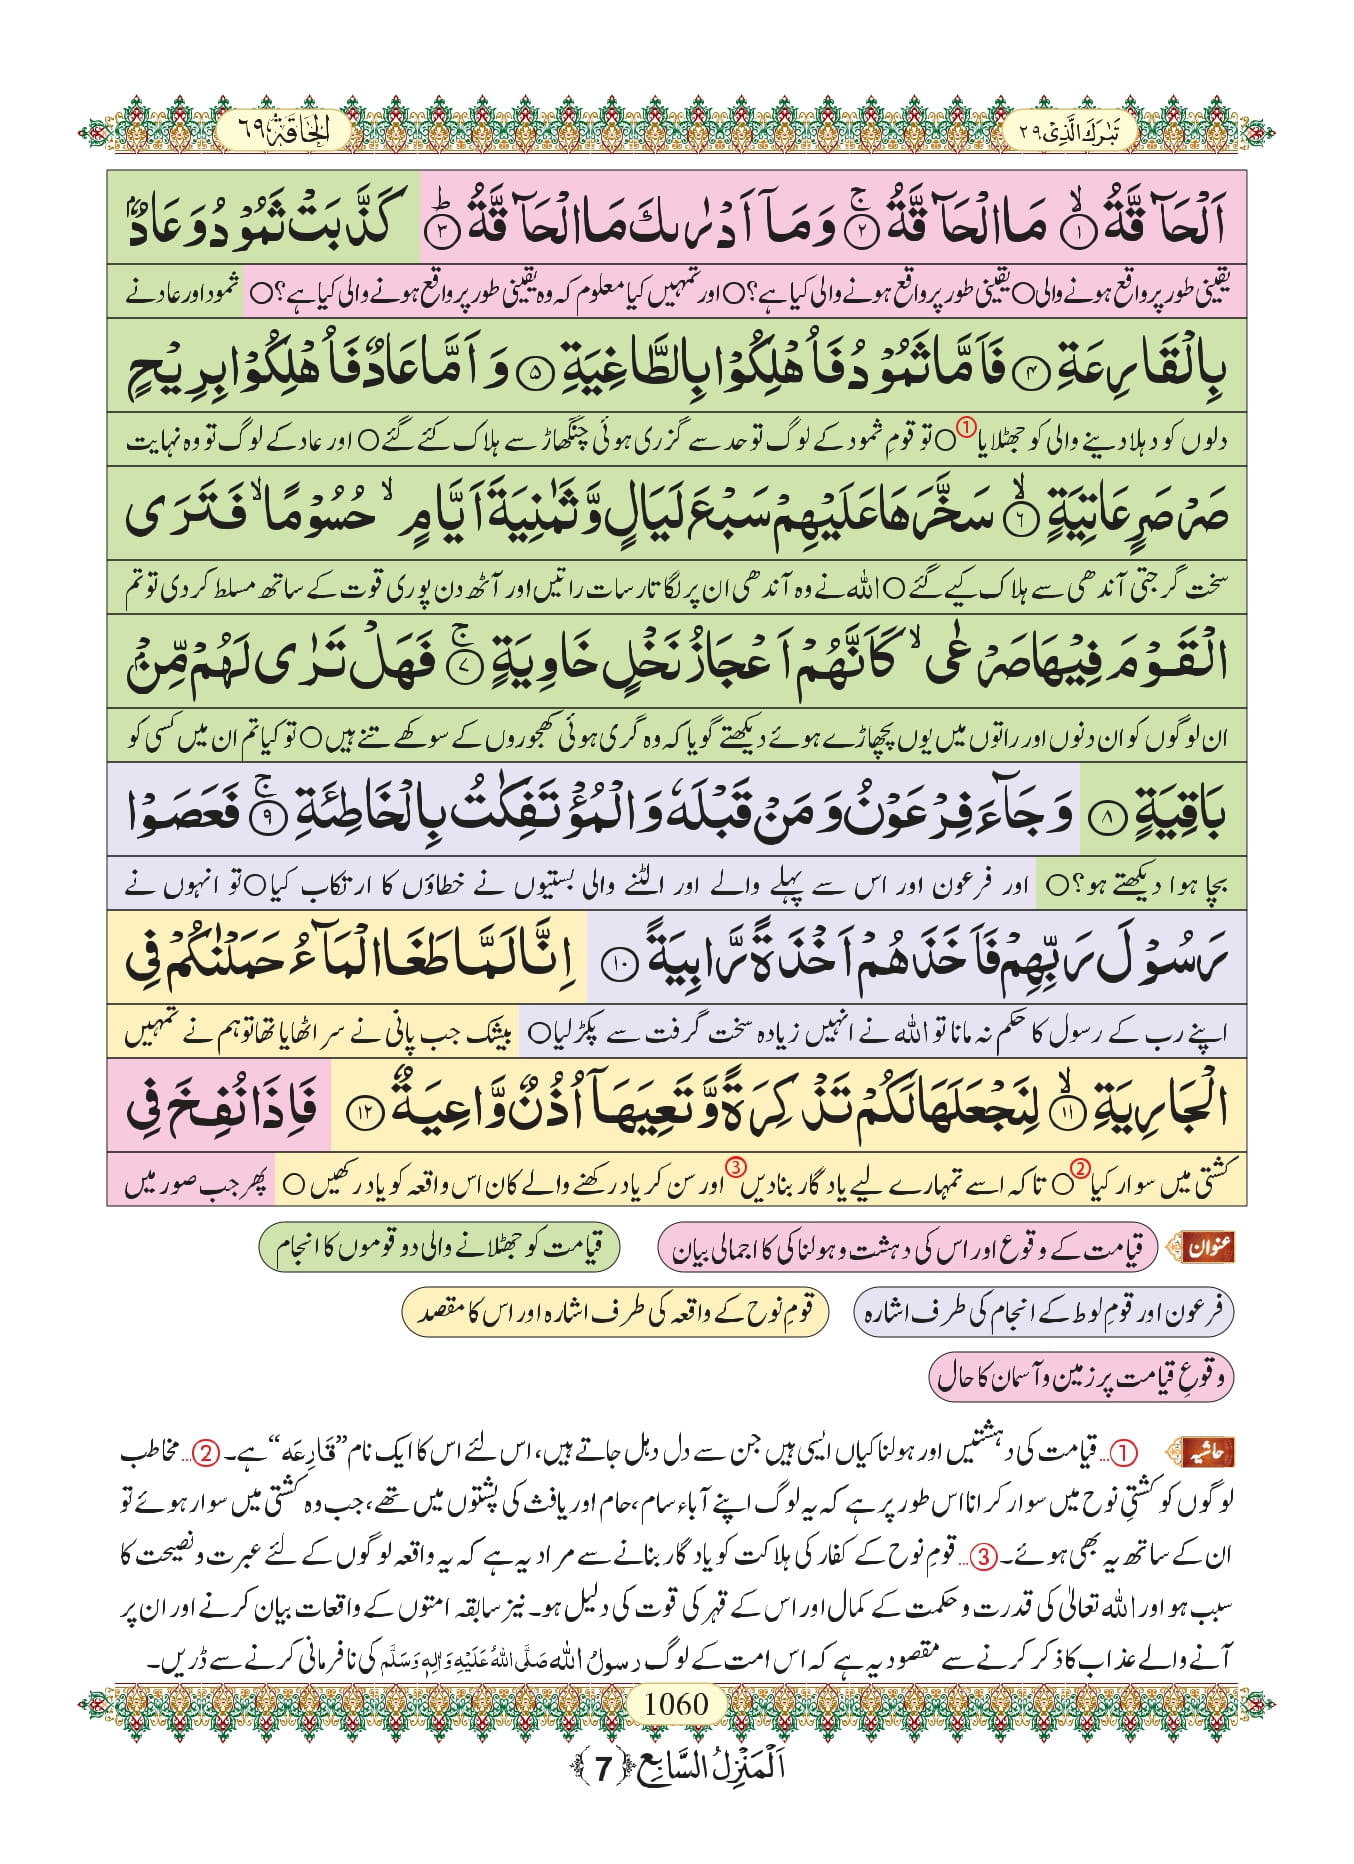 تَبٰرَكَ الَّذِیْ ٢٩
اَلْحَآقَّة ٦٩
اَلْحَآقَّةُۙ﴿۱﴾ مَا الْحَآقَّةُۚ﴿۲﴾ وَ مَاۤ اَدْرٰىكَ مَا الْحَآقَّةُؕ﴿۳﴾ كَذَّبَتْ ثَمُوْدُ وَ عَادٌۢ
یقینی طور پر واقع ہونے والی○ یقینی طور پر واقع ہونے والی کیا ہے؟○ اور تمہیں کیا معلوم کہ وہ یقینی طور پر واقع ہونے والی کیا ہے؟○ ثمود اور عاد نے
بِالْقَارِعَةِ﴿۴﴾ فَاَمَّا ثَمُوْدُ فَاُهْلِكُوْا بِالطَّاغِیَةِ﴿۵﴾ وَ اَمَّا عَادٌ فَاُهْلِكُوْا بِرِیْحٍ
دلوں کو دہلا دینے والی کو جھٹلایا①○ تو قومِ ثمود کے لوگ تو حد سے گزری ہوئی چنگھاڑ سے ہلاک کئے گئے○ اور عاد کے لوگ تو وہ نہایت
صَرْصَرٍ عَاتِیَةٍۙ﴿۶﴾ سَخَّرَهَا عَلَیْهِمْ سَبْعَ لَیَالٍ وَّ ثَمٰنِیَةَ اَیَّامٍۙ حُسُوْمًاۙ فَتَرَى
سخت گرجتی آندھی سے ہلاک کیے گئے○ اللہ نے وہ آندھی ان پر لگاتار سات راتیں اور آٹھ دن پوری قوت کے ساتھ مسلط کردی تو تم
الْقَوْمَ فِیْهَا صَرْعٰىۙ كَاَنَّهُمْ اَعْجَازُ نَخْلٍ خَاوِیَةٍۚ﴿۷﴾ فَهَلْ تَرٰى لَهُمْ مِّنْۢ
ان لوگوں کو ان دنوں اور راتوں میں یوں پچھاڑے ہوئے دیکھتے گویا کہ وہ گری ہوئی کھجوروں کے سوکھے تنے ہیں○ تو کیا تم ان میں کسی کو
بَاقِیَةٍ﴿۸﴾ وَ جَآءَ فِرْعَوْنُ وَ مَنْ قَبْلَهٗ وَ الْمُؤْتَفِكٰتُ بِالْخَاطِئَةِۚ﴿۹﴾ فَعَصَوْا
بچا ہوا دیکھتے ہو؟○ اور فرعون اور اس سے پہلے والے اور الٹنے والی بستیوں نے خطاؤں کا ارتکاب کیا○ تو انہوں نے
رَسُوْلَ رَبِّهِمْ فَاَخَذَهُمْ اَخْذَةً رَّابِیَةً﴿۱۰﴾ اِنَّا لَمَّا طَغَا الْمَآءُ حَمَلْنٰكُمْ فِی
اپنے رب کے رسول کا حکم نہ مانا تو اللہ نے انہیں زیادہ سخت گرفت سے پکڑ لیا○ بیشک جب پانی نے سر اٹھایا تھا تو ہم نے تمہیں
الْجَارِیَةِۙ﴿۱۱﴾ لِنَجْعَلَهَا لَكُمْ تَذْكِرَةً وَّ تَعِیَهَاۤ اُذُنٌ وَّاعِیَةٌ﴿۱۲﴾ فَاِذَا نُفِخَ فِی
کشتی میں سوار کیا②○ تاکہ اسے تمہارے لیے یادگار بنادیں③ اور سن کر یاد رکھنے والے کان اس واقعہ کو یاد رکھیں○ پھر جب صور میں
عنوان قیامت کے وقوع اور اس کی دہشت و ہولناکی کا اجمالی بیان قیامت کو جھٹلانے والی دو قوموں کا انجام
فرعون اور قومِ لوط کے انجام کی طرف اشارہ قومِ نوح کے واقعہ کی طرف اشارہ اور اس کا مقصد
وقوعِ قیامت پر زمین و آسمان کا حال
حاشیہ ①... قیامت کی دہشتیں اور ہولناکیاں ایسی ہیں جن سے دل دہل جاتے ہیں، اس لئے اس کا ایک نام ”قَارِعَہ“ ہے۔ ②... مخاطب
لوگوں کو کشتیِ نوح میں سوار کرانا اس طور پر ہے کہ یہ لوگ اپنے آباء سام، حام اور یافث کی پشتوں میں تھے، جب وہ کشتی میں سوار ہوئے تو
ان کے ساتھ یہ بھی ہوئے۔ ③... قومِ نوح کے کفار کی ہلاکت کو یادگار بنانے سے مراد یہ ہے کہ یہ واقعہ لوگوں کے لئے عبرت و نصیحت کا
سبب ہو اور اللہ تعالیٰ کی قدرت و حکمت کے کمال اور اس کے قہر کی قوت کی دلیل ہو۔ نیز سابقہ امتوں کے واقعات بیان کرنے اور ان پر
آنے والے عذاب کا ذکر کرنے سے مقصود یہ ہے کہ اس امت کے لوگ رسولُ اللہ صَلَّى اللهُ عَلَيْهِ وَاٰلِهٖ وَسَلَّمَ کی نافرمانی کرنے سے ڈریں۔
1060
اَلْمَنْزِلُ السَّابِع ﴿7﴾